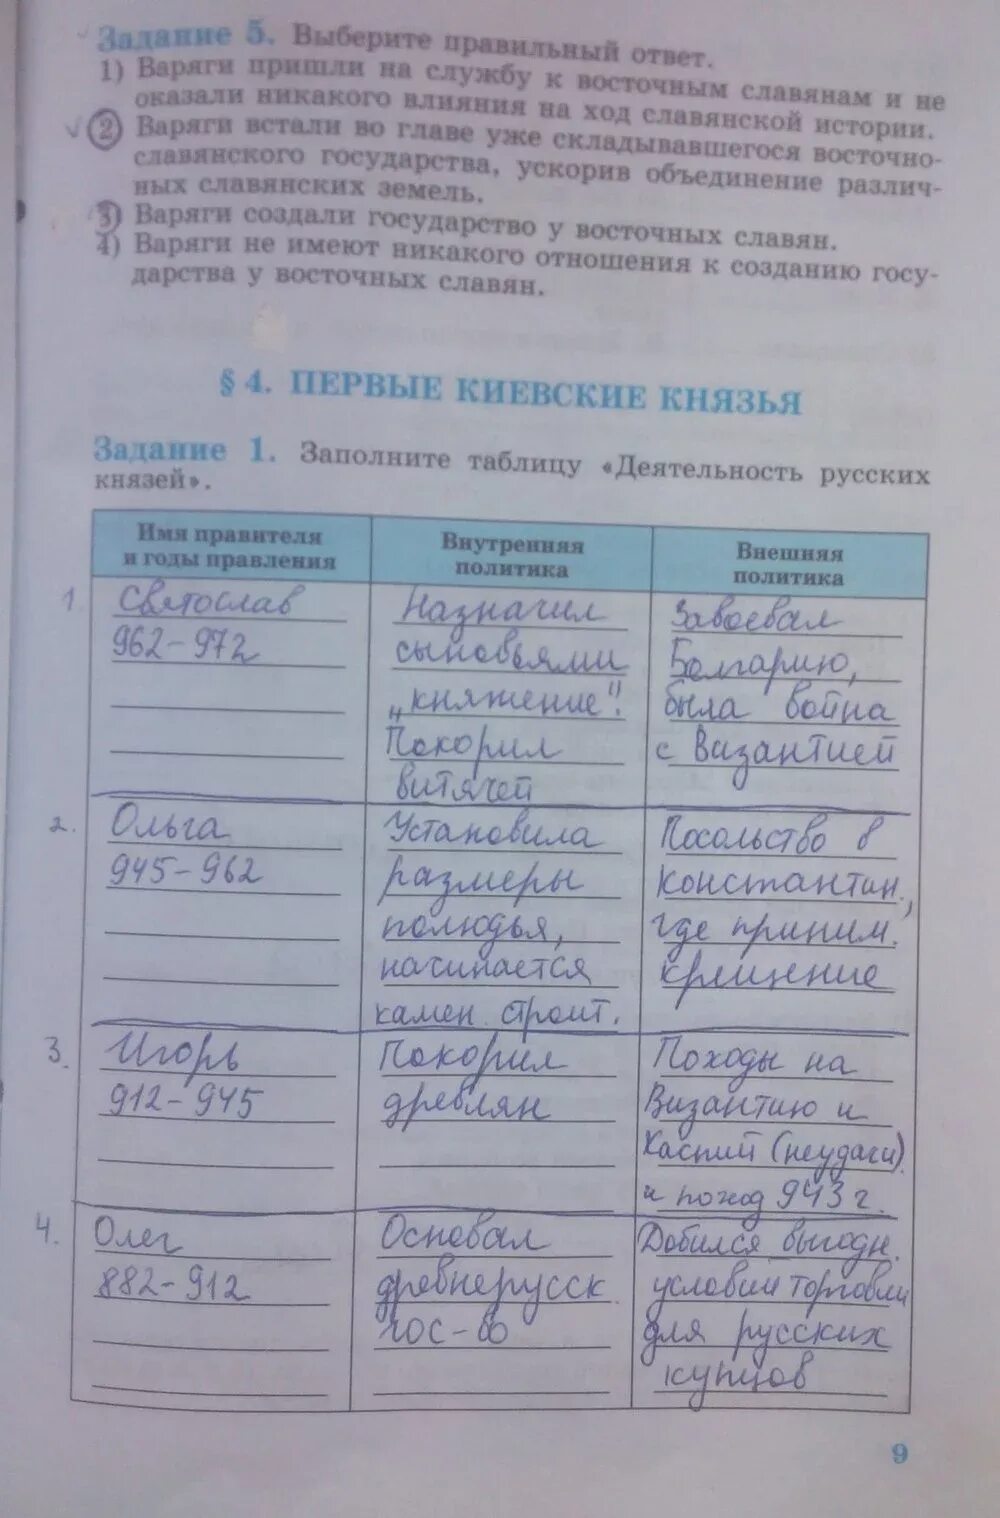 Задание 5. Выберите правильный ответ.
1) Варяги пришли на службу к восточным славянам и не
оказали никакого влияния на ход славянской истории.
2) Варяги встали во главе уже складывавшегося восточно-
славянского государства, ускорив объединение различ-
ных славянских земель.
3) Варяги создали государство у восточных славян.
4) Варяги не имеют никакого отношения к созданию госу-
дарства у восточных славян.
§ 4. ПЕРВЫЕ КИЕВСКИЕ КНЯЗЬЯ
Задание 1. Заполните таблицу «Деятельность русских
князей».
Имя правителя
и годы правления
Внутренняя
политика
Внешняя
политика
1.
Святослав
962-972
Назначил
сыновьями
„княжение".
Покорил
витячей
Завоевал
Болгарию,
была война
с Византией
2.
Ольга
945-962
Установила
размеры
полюдья,
начинается
камен. строит.
Посольство в
Константин.,
где приним.
крещение
3.
Игорь
912-945
Покорил
древлян
Походы на
Византию и
Каспий (неудачи)
и поход 943 г.
4.
Олег
882-912
Основал
древнерусск
гос-во
Добился выгодн.
условий торговли
для русских
купцов
9